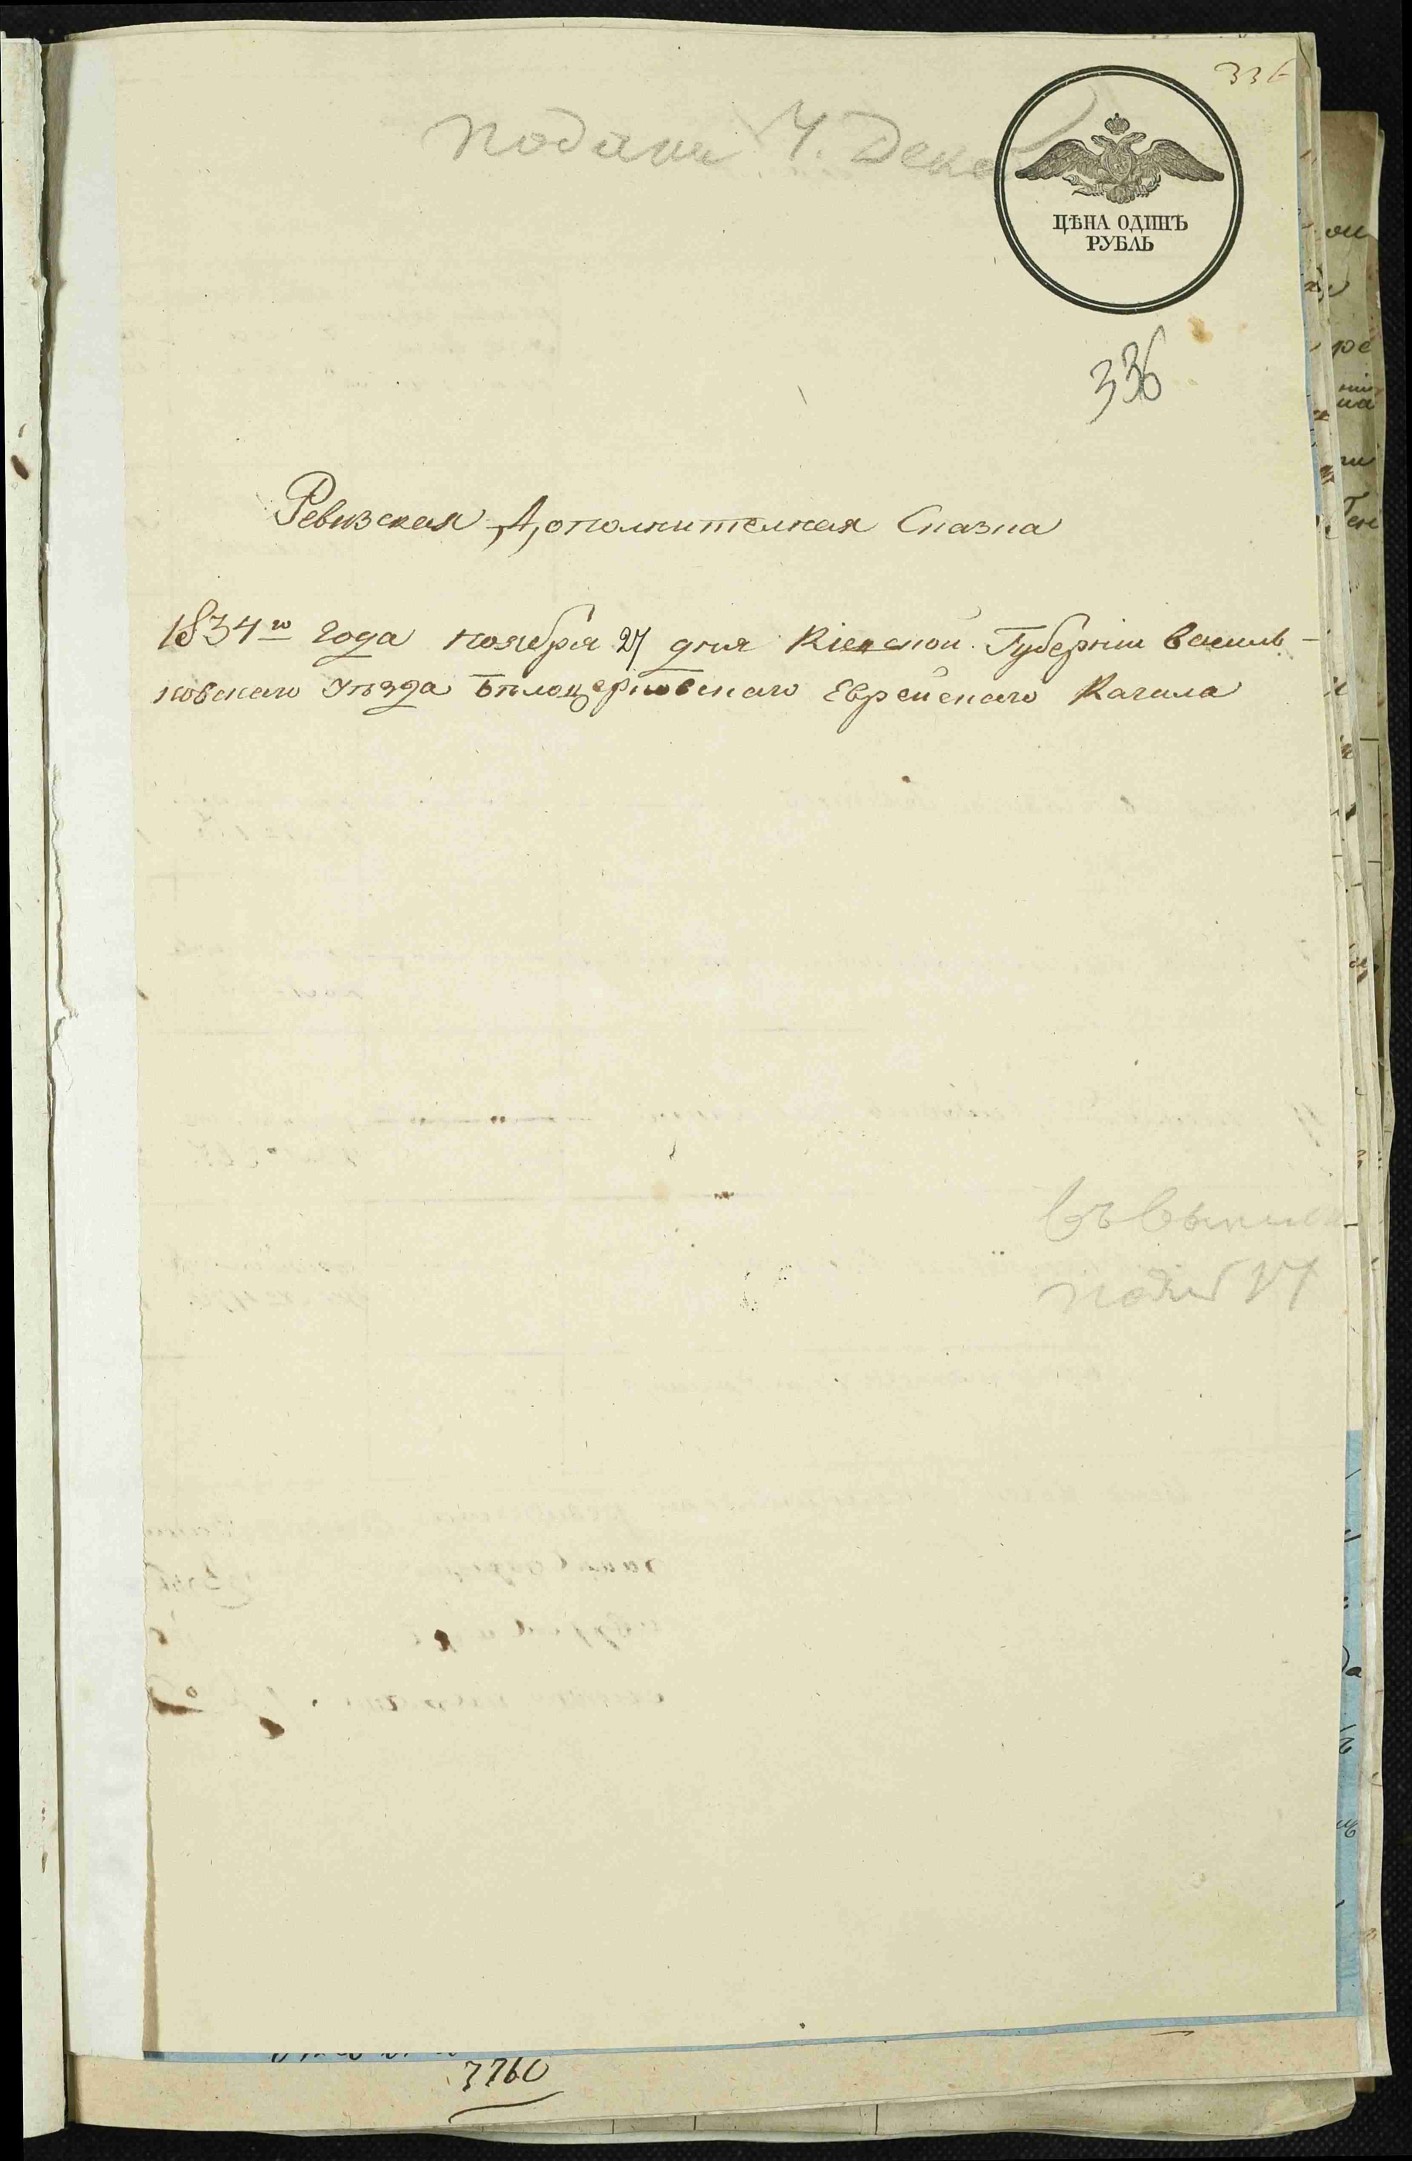 336
подана 4. Дека
ЦѢНА ОДИНЪ
РУБЛЬ
336
Ревизская Дополнителная Сказка
1834го года ноября 27 дня Кіевской Губерніи Василь-
ковскаго Уѣзда Бѣлоцерковскаго Еврейскаго Кагала
3760